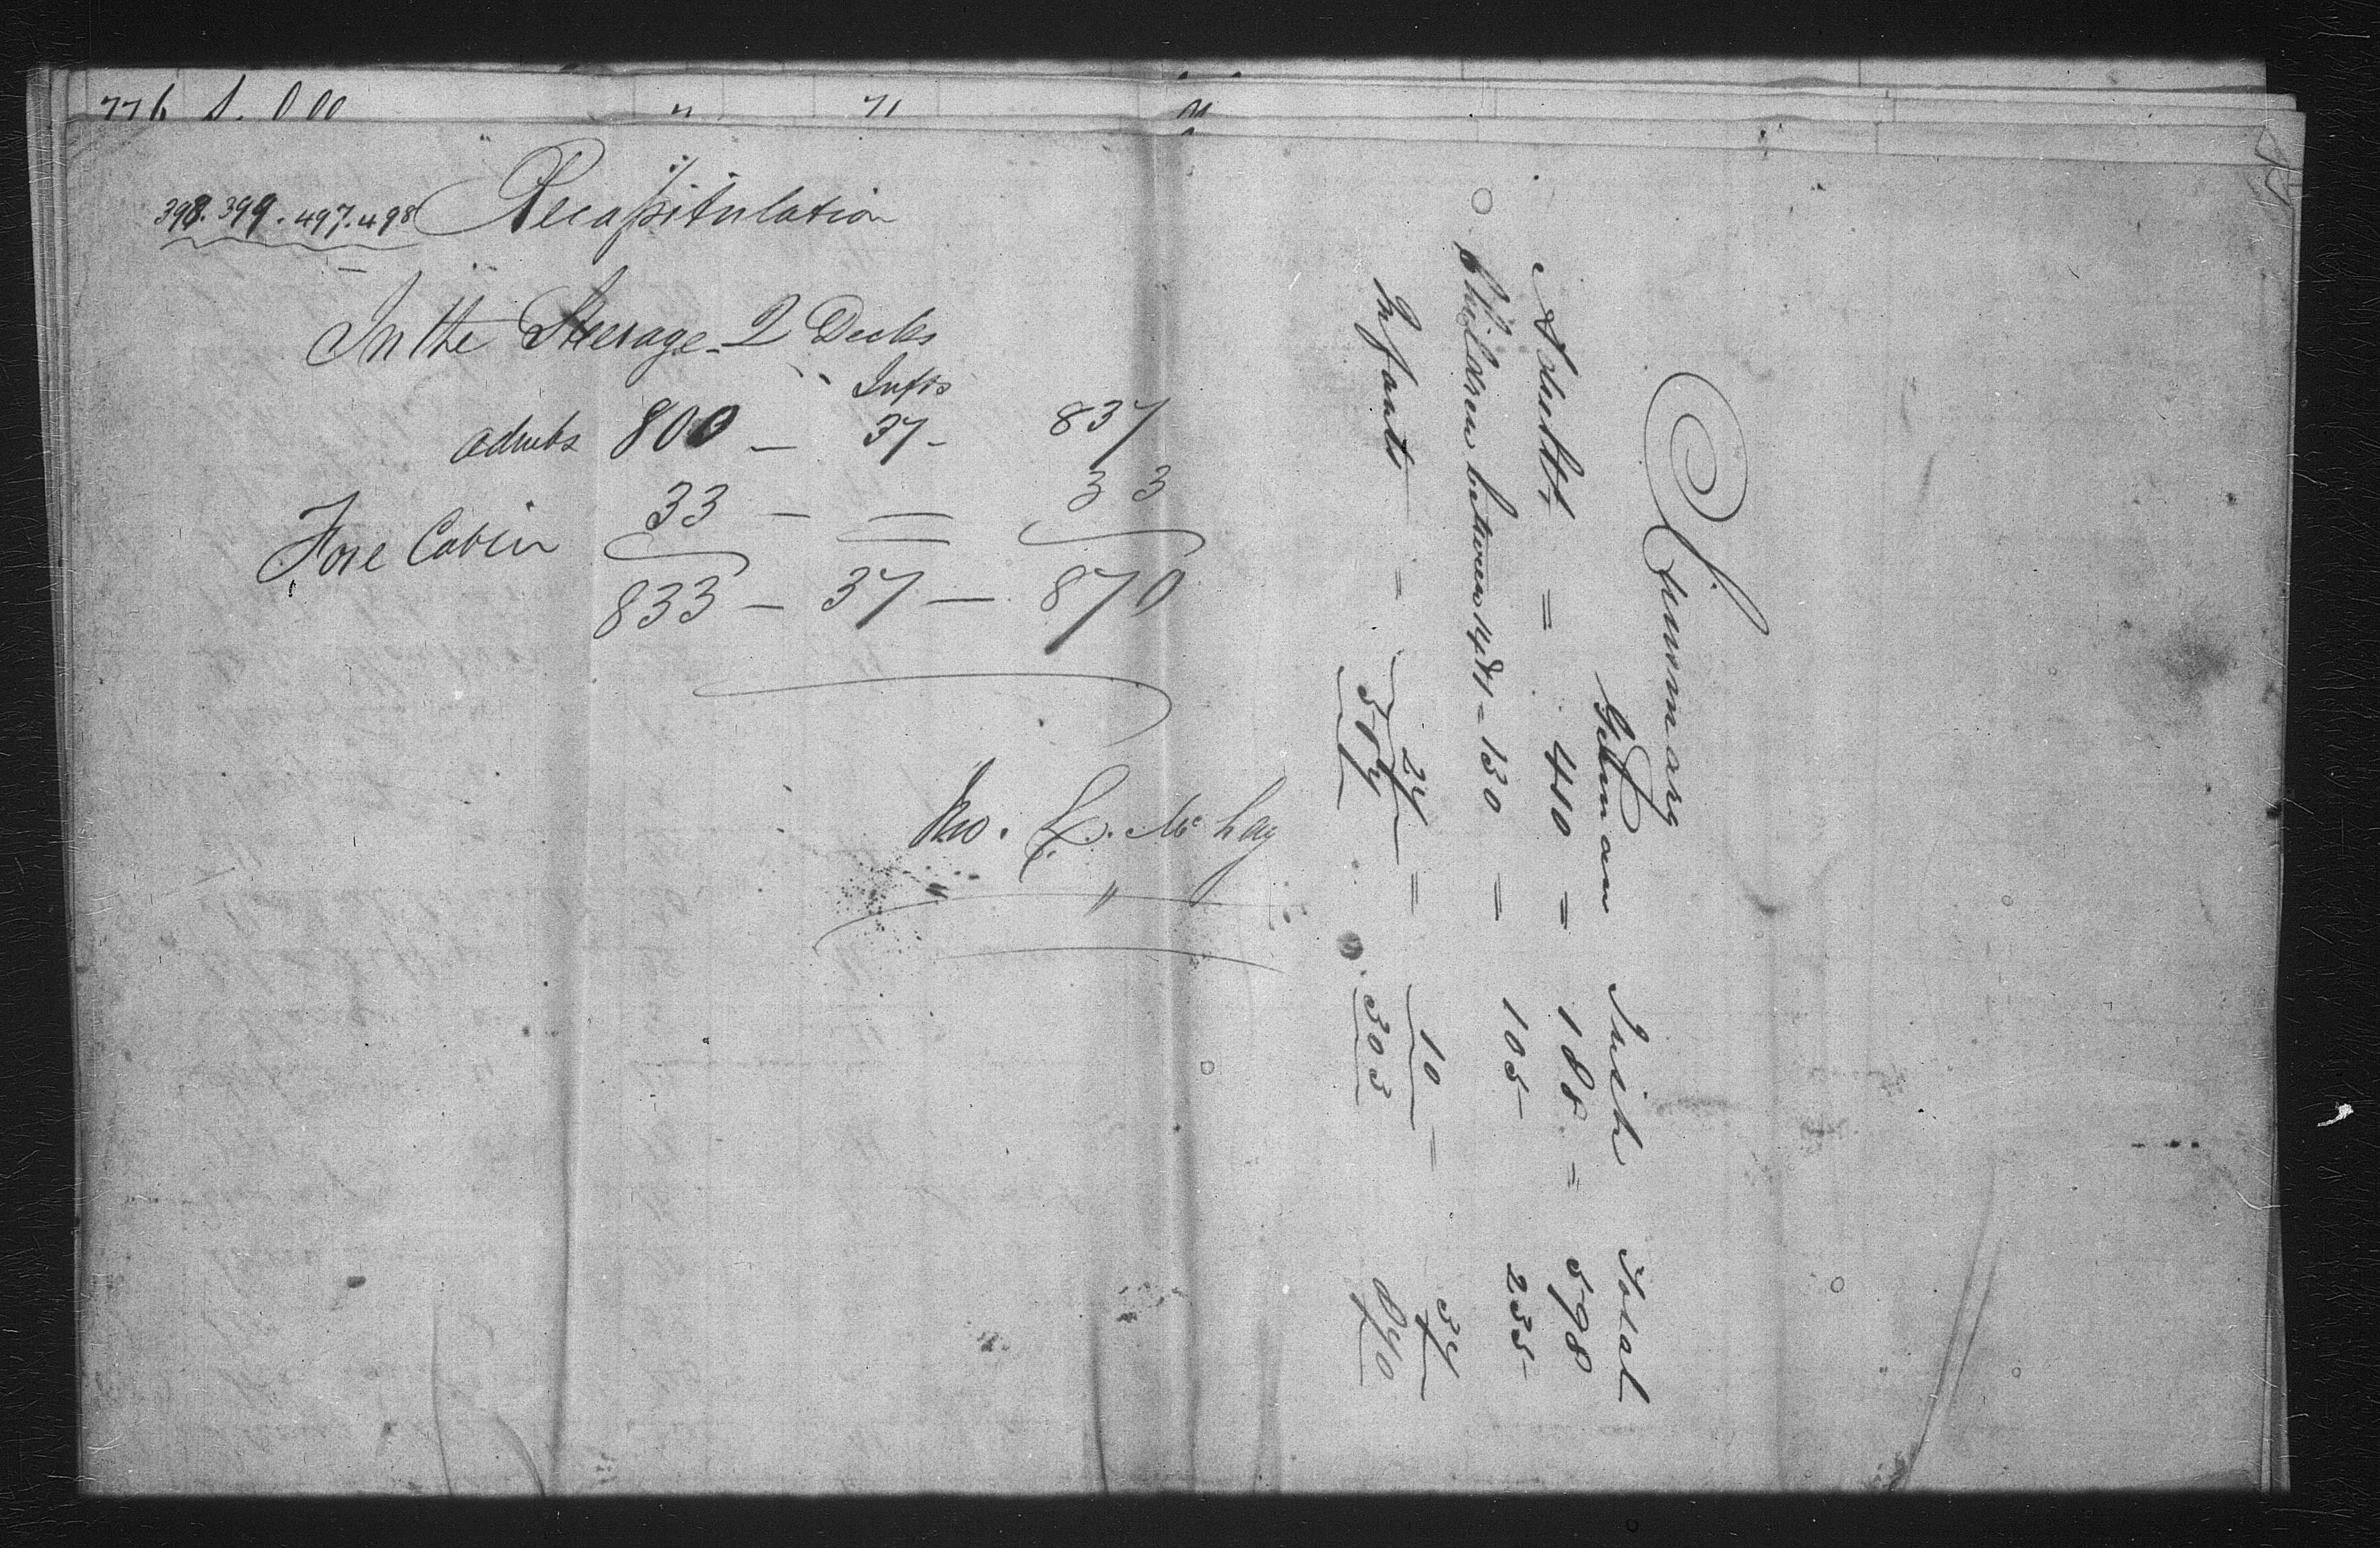 776
398. 399. 497. 498 Recapitulation
In the Steerage 2 Decks
Infts
adults 800 — 37 - 837
Fore Cabin 33 — = 33
833 — 37 — 870
Summary
German Irish Total
Adults = 410 = 188 = 598
Children between 14 & 1 = 130 = 105 235
Infants - = 27 = 10 = 37
567 303 870